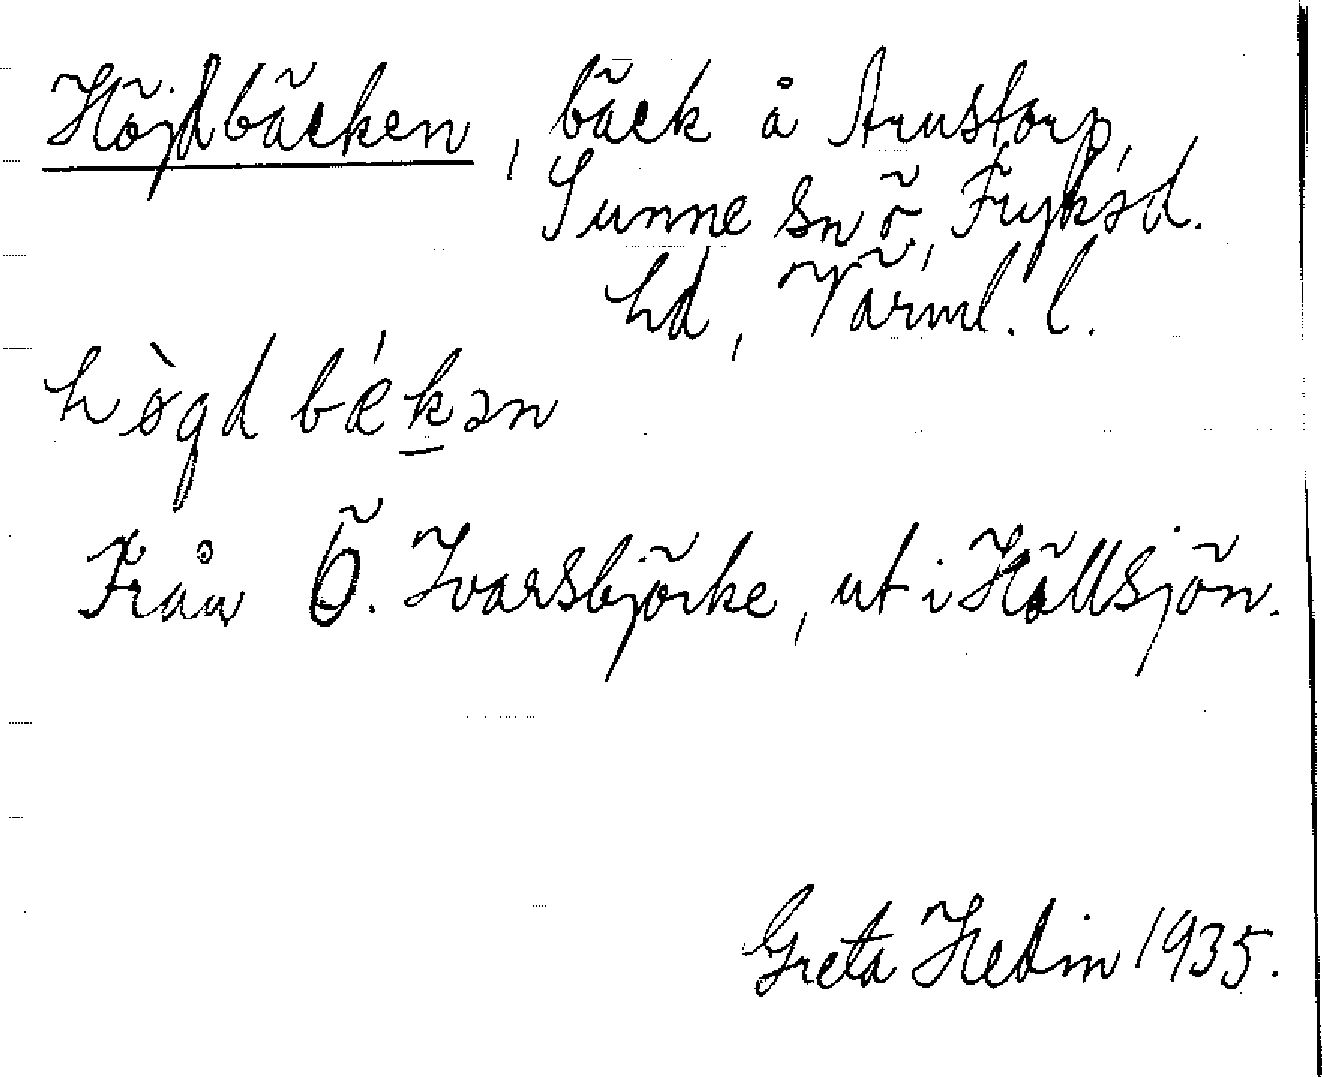 Höjdbäcken, bäck å Arustorp,
Sunne sn ö, Fryksd.
hd, Värml. l.
hø̀gd bǽkən
Från Ö. Ivarsbjörke, ut i Hällsjön.
Greta Hedin 1935.